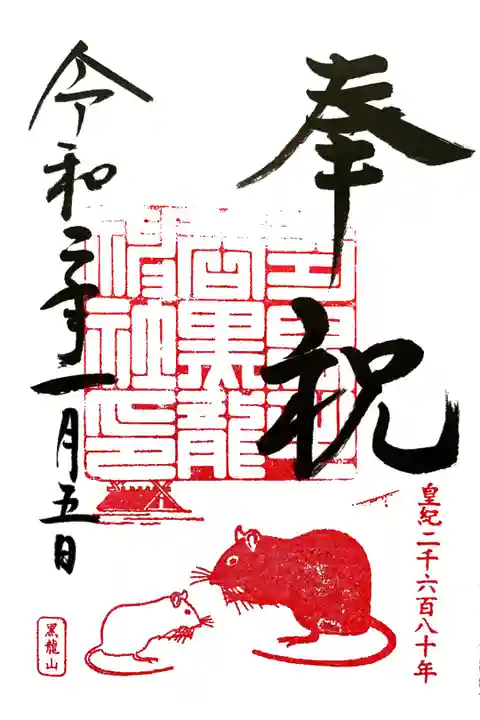 奉祝
皇紀二千六百八十年
令和二年一月五日
黒龍山